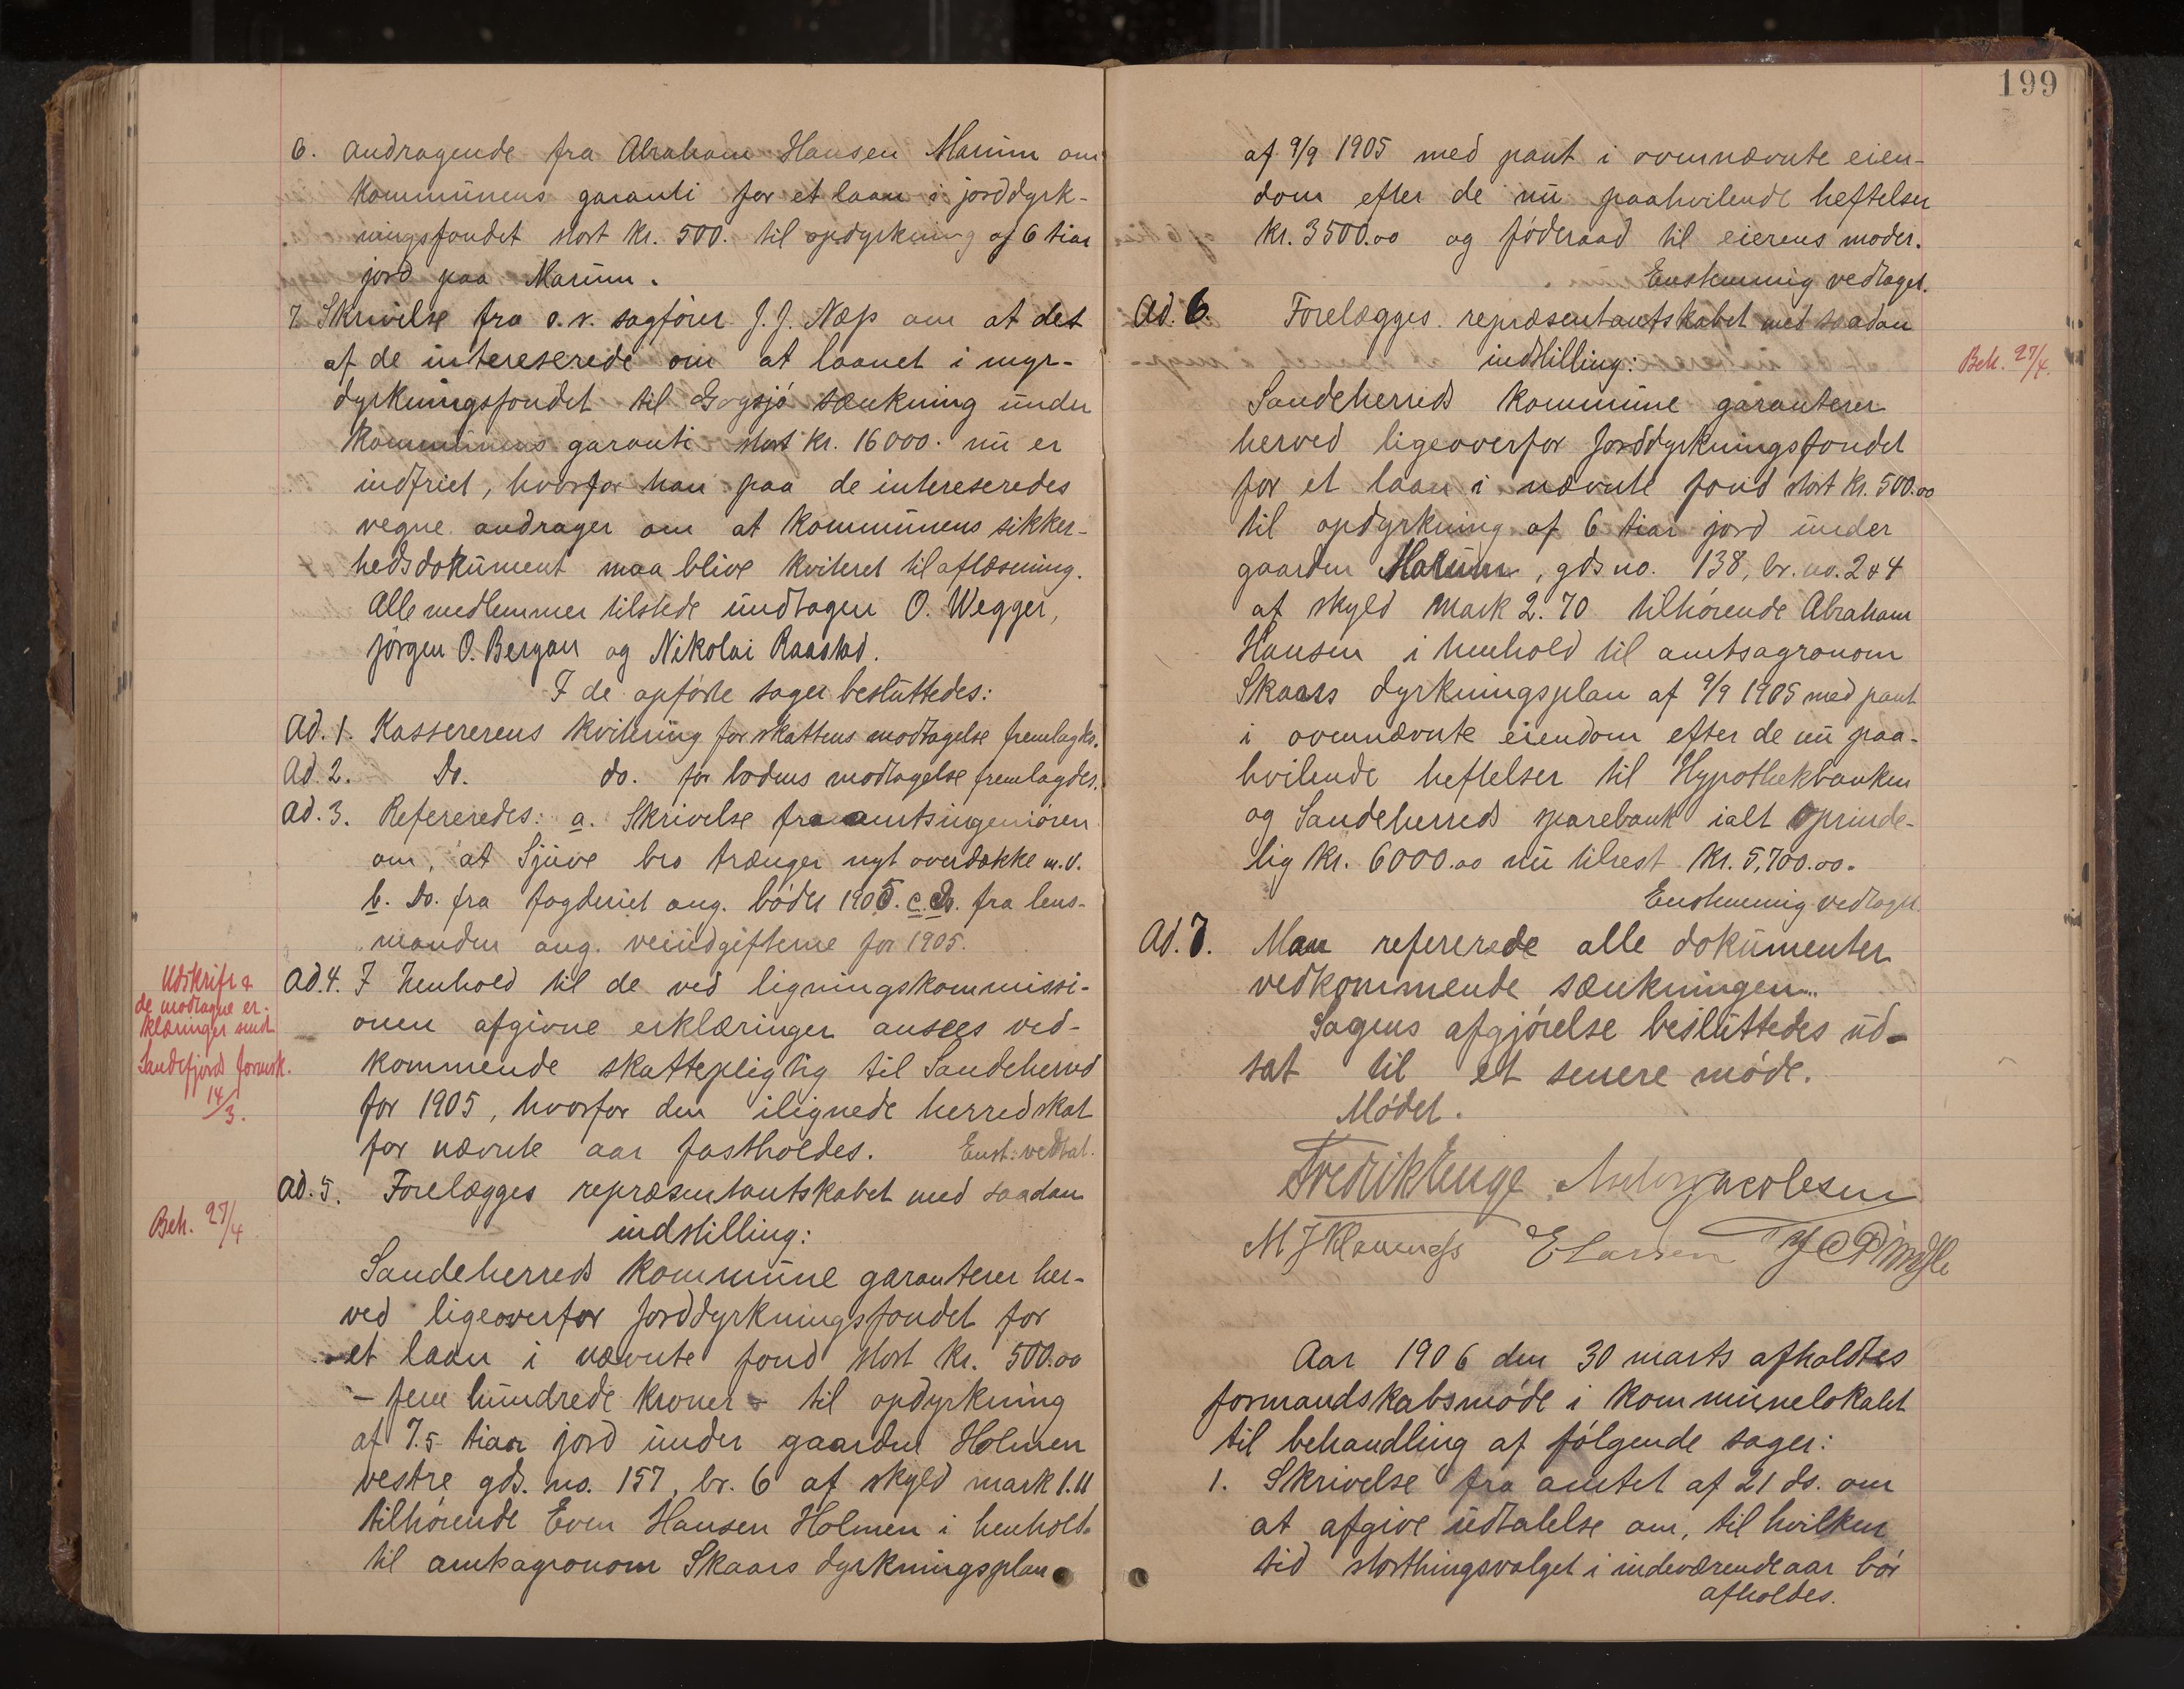 6. Andragende fra Abraham Hansen Marum om
kommunens garanti for et laan i jorddyrk-
ningsfondet stort kr. 500. til opdyrkning af 6 tiar
jord paa Marum.
7. Skrivelse fra o.r. sagfører J. J. Næss om at det
af de intereserede om at laanet i myr-
dyrkningsfondet til Gogsjø sænkning under
kommunens garanti stort kr. 16000. nu er
indfriet, hvorfor han paa de intereseredes
vegne andrager om at kommunens sikker-
hedsdokument maa blive kviteret til aflæsning.
Alle medlemmer tilstede undtagen O. Wegger,
Jørgen O. Bergan og Nikolai Raastad.
I de opførte sager besluttedes:
Ad. 1. Kassererens kvitering for skattens modtagelse fremlagdes.
Ad. 2. Do. do. for bodens modtagelse fremlagdes.
Ad. 3. Refereredes: a. Skrivelse fra amtsingeniøren
om, at Sjuve bro trænger nyt overdække m.v.
b. Do. fra fogderiet ang. bøder 1905. c. Do. fra lens-
manden ang. veiudgifterne for 1905.
Udskrift &
de modtagne er-
klæringer sendt
Sandefjords formsk.
14/3.
Ad. 4. I henhold til de ved ligningskommissi-
onen afgivne erklæringer ansees ved-
kommende skattepligtig til Sandeherred
for 1905, hvorfor den ilignede herredskat
for nævnte aar fastholdes. Enst. vedtat.
Beh. 27/4
Ad. 5. Forelægges repræsentantskabet med saadan
indstilling:
Sandeherreds kommune garanterer her-
ved ligeoverfor Jorddyrkningsfondet for
et laan i nævnte fond stort kr. 500.00
- fem hundrede kroner - til opdyrkning
af 7.5 tiar jord under gaarden Holmen
vestre gds. no. 157, br. 6 af skyld mark 1.11
tilhørende Even Hansen Holmen i henhold
til amtsagronom Skaars dyrkningsplan
199
af 9/9 1905 med pant i ovennævnte eien-
dom efter de nu paahvilende heftelser
kr. 3500.00 og føderaad til eierens moder.
Enstemmig vedtaget.
Ad. 6. Forelægges repræsentantskabet med saadan
indstilling:
Beh. 27/4.
Sandeherreds kommune garanterer
herved ligeoverfor Jorddyrkningsfondet
for et laan i nævnte fond stort kr. 500.00
til opdyrkning af 6 tiar jord under
gaarden Marum, gds no. 138, br. no. 2 & 4
af skyld mark 2.70 tilhørende Abraham
Hansen i henhold til amtsagronom
Skaars dyrkningsplan af 9/9 1905 med pant
i ovennævnte eiendom efter de nu paa-
hvilende heftelser til Hypothekbanken
og Sandeherreds sparebank ialt oprinde-
lig kr. 6000.00 nu tilrest kr. 5,700.00.
Enstemmig vedtaget.
Ad. 7. Man refererede alle dokumenter
vedkommende sænkningen.
Sagens afgjørelse besluttedes ud-
sat til et senere møde.
Mødet.
Fredrik Enge Jacobsen
E Larsen
Aar 1906 den 30 marts afholdtes
formandskabsmøde i kommunelokalet
til behandling af følgende sager:
1. Skrivelse fra amtet af 21 ds. om
at afgive udtalelse om, til hvilken
tid storthingsvalget i indeværende aar bør
afholdes.